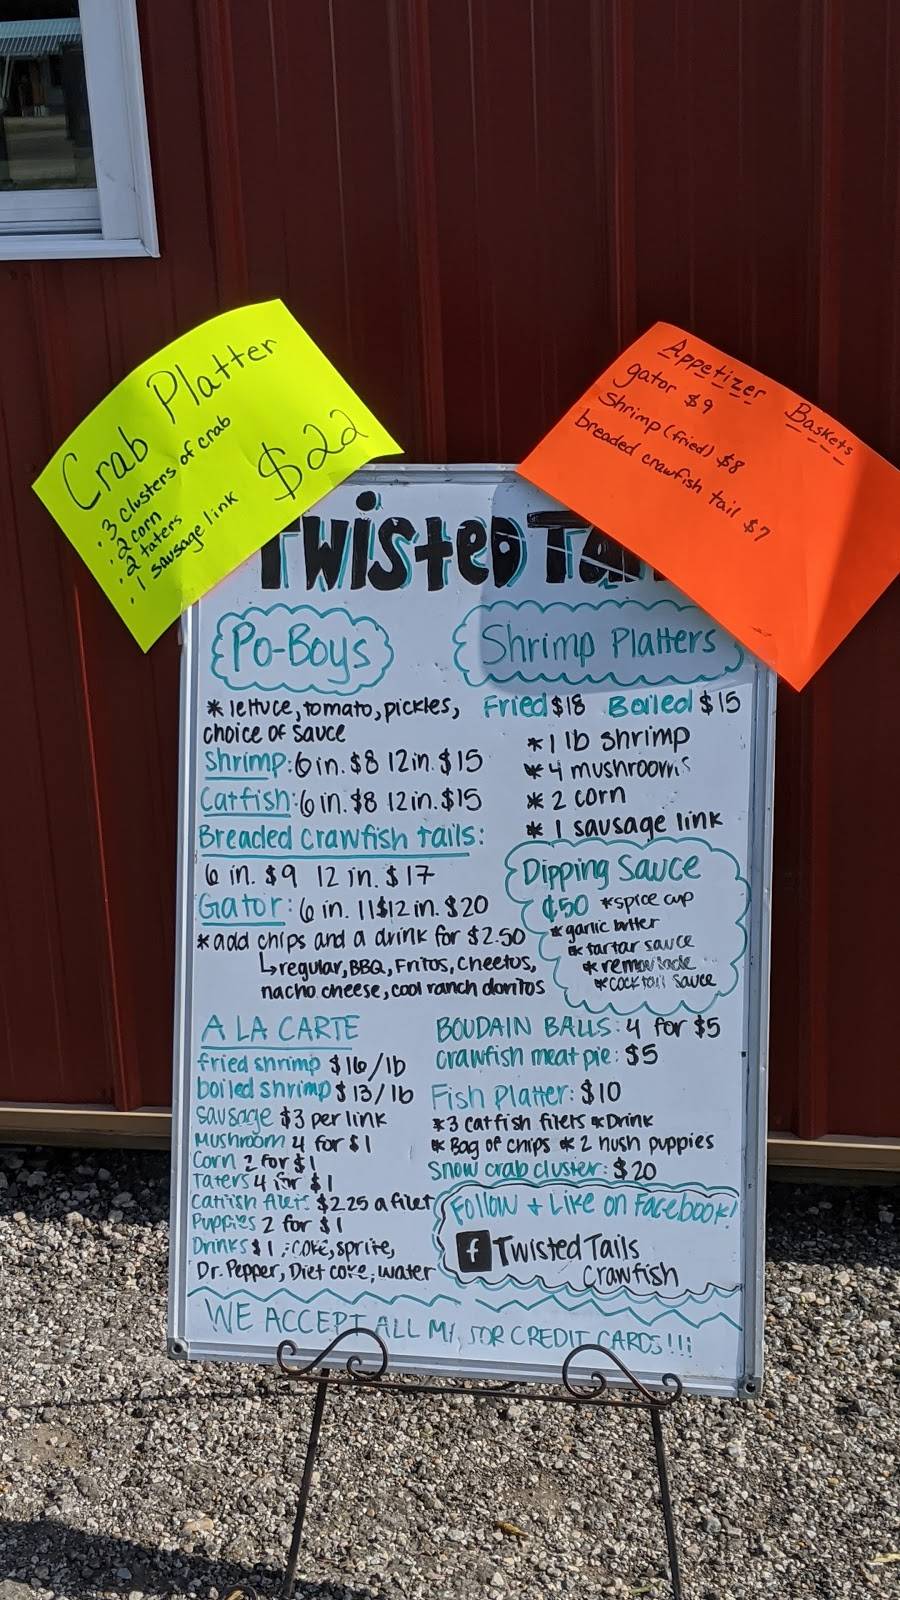 Crab Platter
. 3 clusters of crab
. 2 corn
. 2 taters
. 1 sausage link
$22
Appetizer Baskets
gator $9
Shrimp (fried) $8
breaded crawfish tail $7
Twisted Tail
Po-Boys
* lettuce, tomato, pickles,
choice of sauce
Shrimp: 6 in. $8 12 in. $15
Catfish: 6 in. $8 12 in. $15
Breaded Crawfish Tails:
6 in. $9 12 in. $17
Gator: 6 in. 11$ 12 in. $20
* add chips and a drink for $2.50
↳ regular, BBQ, Fritos, Cheetos,
nacho cheese, cool ranch doritos
Shrimp Platters
Fried $18 Boiled $15
* 1 lb shrimp
* 4 mushrooms
* 2 corn
* 1 sausage link
Dipping Sauce
¢50 * spice cup
* garlic butter
* tartar sauce
* cocktail sauce
A LA CARTE
fried shrimp $16/lb
boiled shrimp $13/lb
sausage $3 per link
Mushroom 4 for $1
Corn 2 for $1
Taters 4 for $1
Catfish filet: $2.25 a filet
Puppies 2 for $1
Drinks $1 : coke, sprite,
Dr. Pepper, Diet coke, water
BOUDAIN BALLS: 4 for $5
crawfish meat pie: $5
Fish Platter: $10
* 3 catfish filets * Drink
* Bag of chips * 2 hush puppies
Snow crab cluster: $20
Follow + Like on Facebook!
f Twisted Tails
Crawfish
WE ACCEPT ALL MAJOR CREDIT CARDS!!!